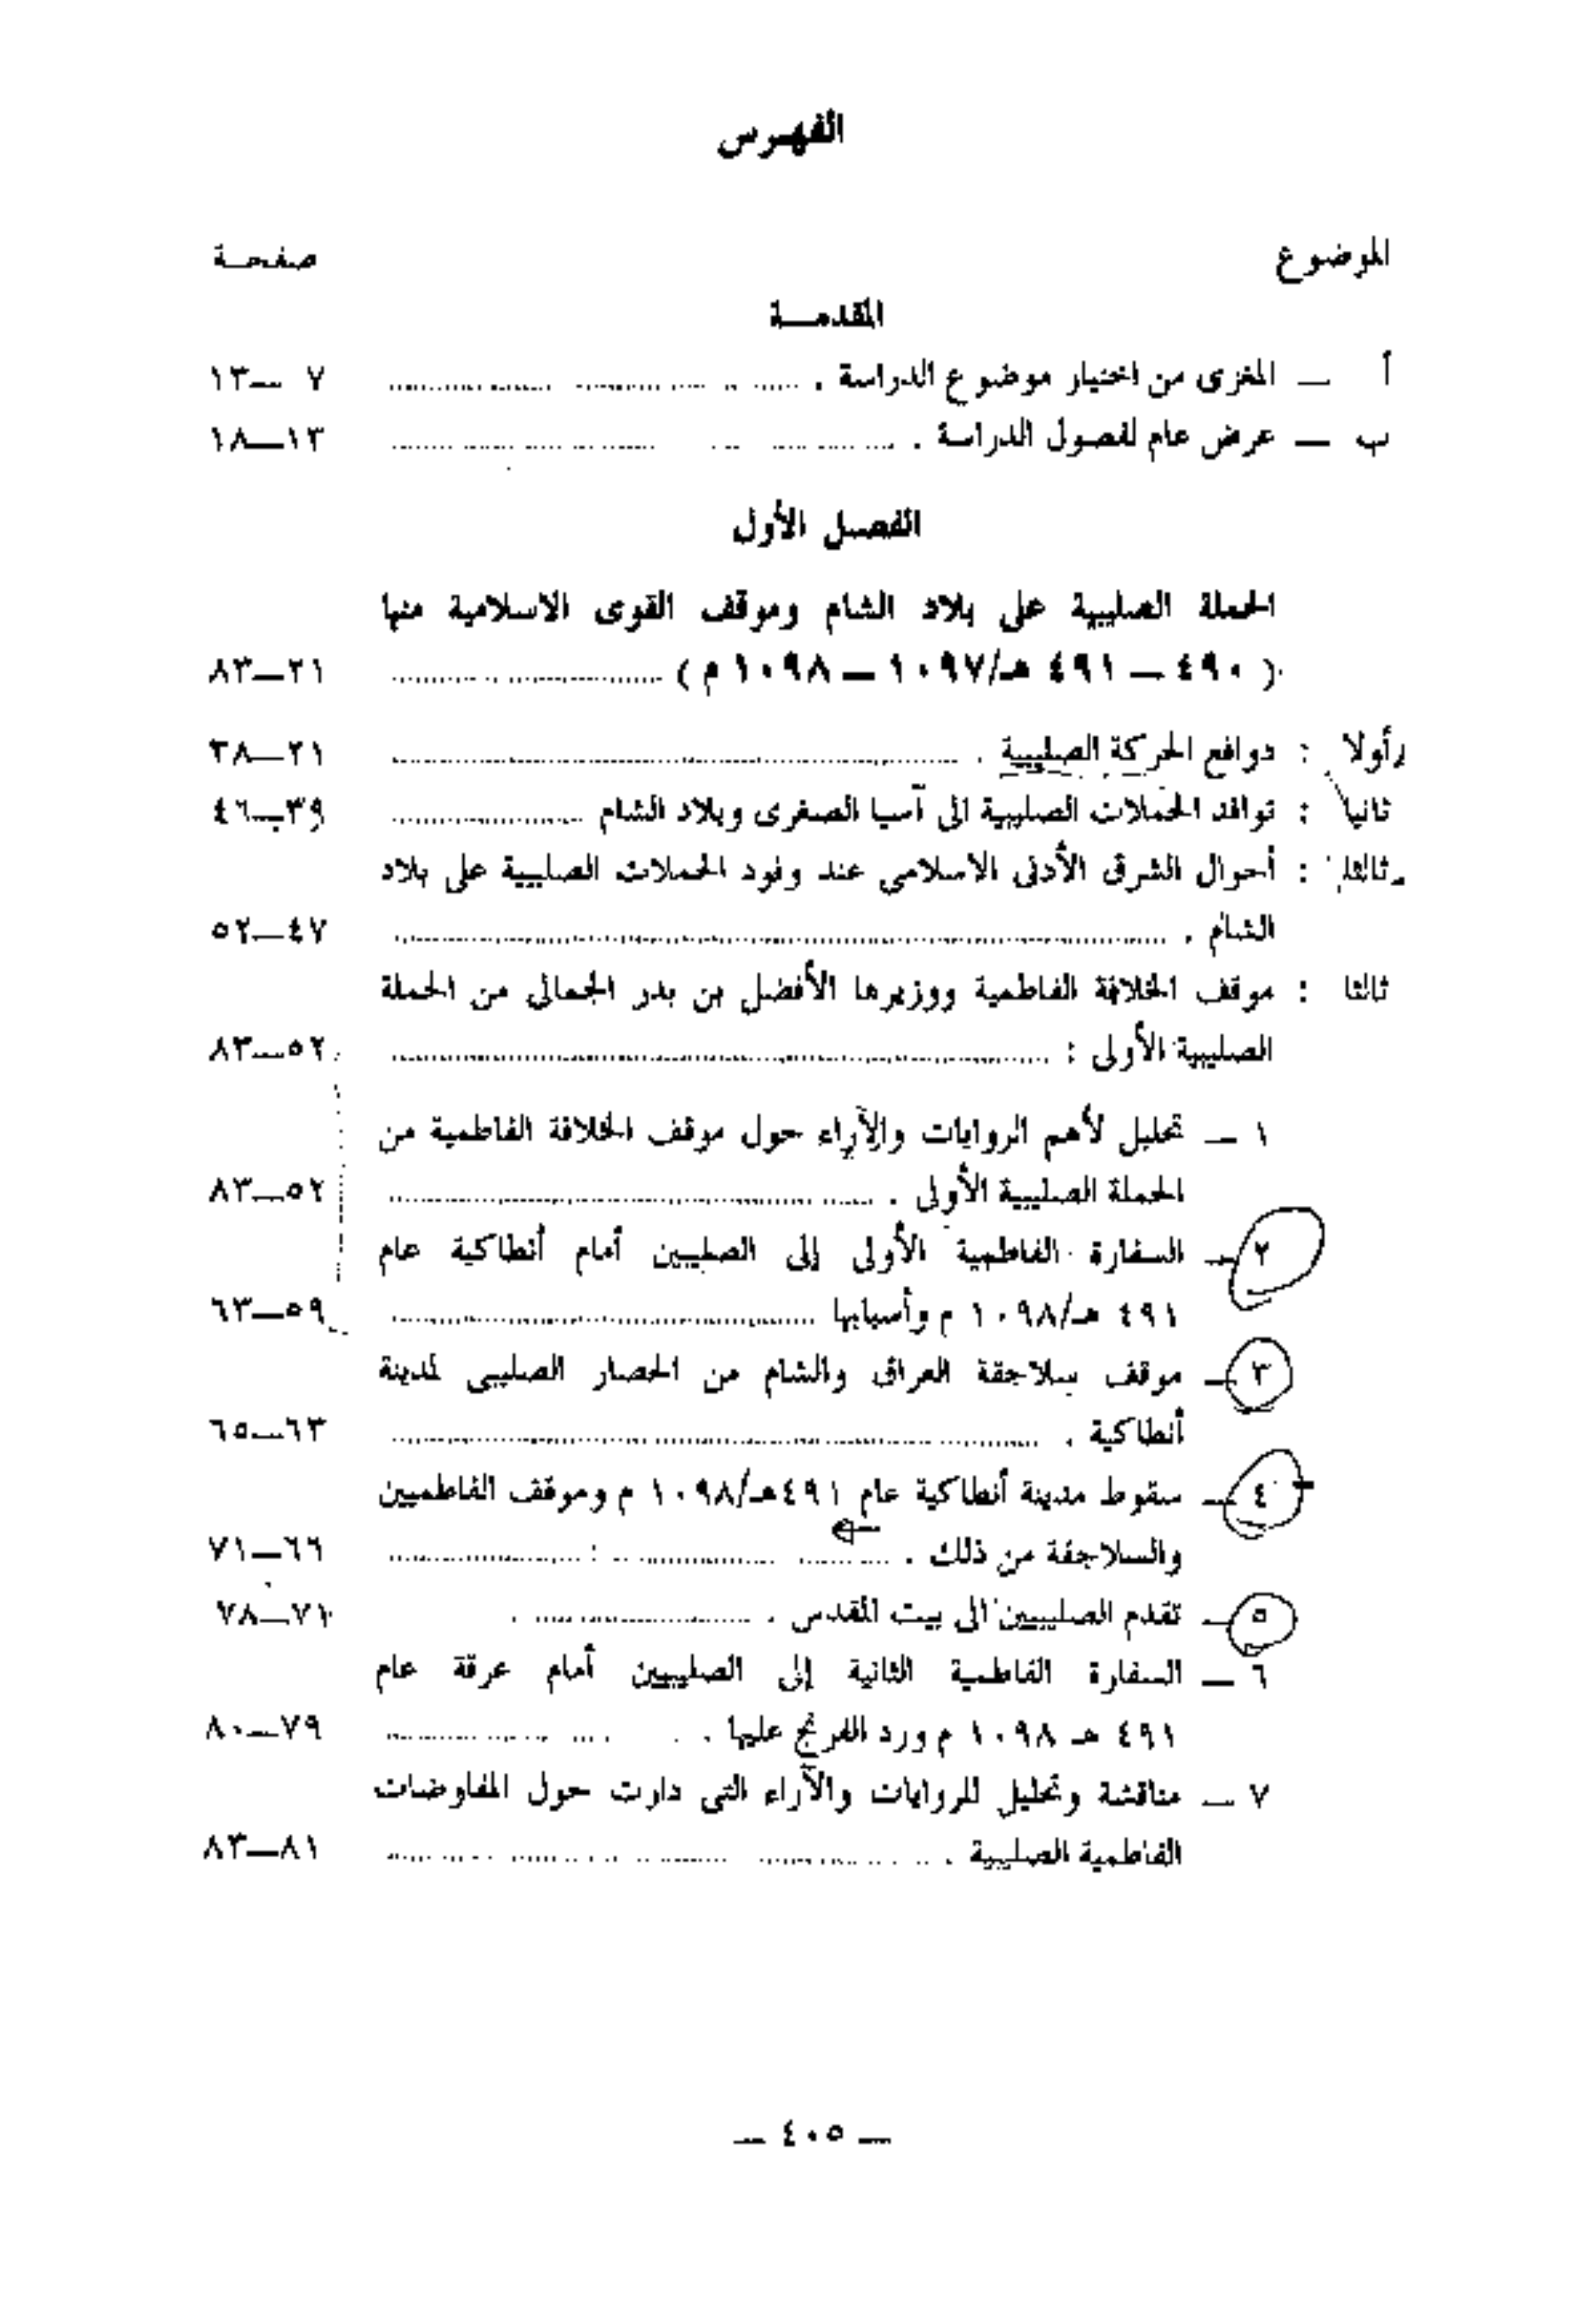 الفهرس
الموضوع صفحة
المقدمة
أ — المغزى من اختيار موضوع الدراسة . ٧ —١٣
ب — عرض عام لفصول الدراسة . ١٣—١٨
الفصل الأول
الحملة الصليبية على بلاد الشام وموقف القوى الاسلامية منها
( ٤٩٠ — ٤٩١ هـ/١٠٩٧ — ١٠٩٨ م ) ٢١—٨٣
أولا : دوافع الحركة الصليبية . ٢١—٣٨
ثانيا : توافد الحملات الصليبية الى آسيا الصغرى وبلاد الشام ٣٩—٤٦
ثالثا : أحوال الشرق الأدنى الاسلامي عند وفود الحملات الصليبية على بلاد
الشام . ٤٧—٥٢
ثالثا : موقف الخلافة الفاطمية ووزيرها الأفضل بن بدر الجمالى من الحملة
الصليبية الأولى : ٥٢—٨٣
١ — تحليل لأهم الروايات والآراء حول موقف الخلافة الفاطمية من
الحملة الصليبية الأولى . ٥٢—٨٣
٢ — السفارة الفاطمية الأولى إلى الصليبين أمام أنطاكية عام
٤٩١ هـ/١٠٩٨ م وأسبابها ٥٩—٦٣
٣ — موقف سلاجقة العراق والشام من الحصار الصليبى لمدينة
أنطاكية . ٦٣—٦٥
٤ — سقوط مدينة أنطاكية عام ٤٩١هـ/١٠٩٨ م وموقف الفاطميين
والسلاجقة من ذلك . ٦٦—٧١
٥ — تقدم الصليبيين الى بيت المقدس . ٧١—٧٨
٦ — السفارة الفاطمية الثانية إلى الصليبيين أمام عرقة عام
٤٩١ هـ ١٠٩٨ م ورد الفرنج عليها . ٧٩—٨٠
٧ — مناقشة وتحليل للروايات والآراء التى دارت حول المفاوضات
الفاطمية الصليبية . ٨١—٨٣
— ٤٠٥ —